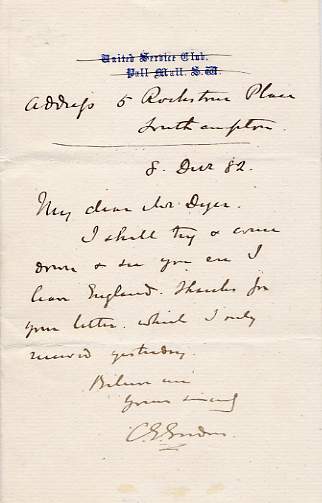 United Service Club,
Pall Mall. S.W.
Address 5 Rockstone Place
Southampton.
8. Dec 82.
My dear Mr Dyer.
I shall try & come
down & see you ere I
leave England. Thanks for
your letter. which I only
received yesterday.
Believe me
Yours sincerely
C. G. Gordon